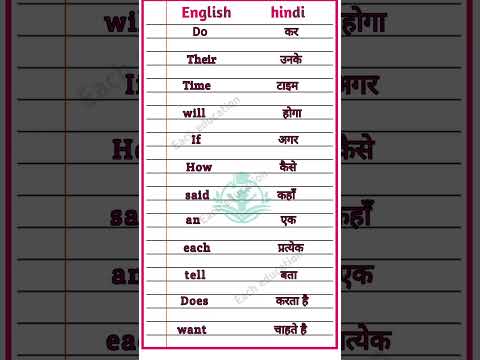 English hindi
Do कर
Their उनके
Time टाइम
will होगा
If अगर
How कैसे
said कहाँ
an एक
each प्रत्येक
tell बता
Does करता है
want चाहते है
Each education
Each education
Each education